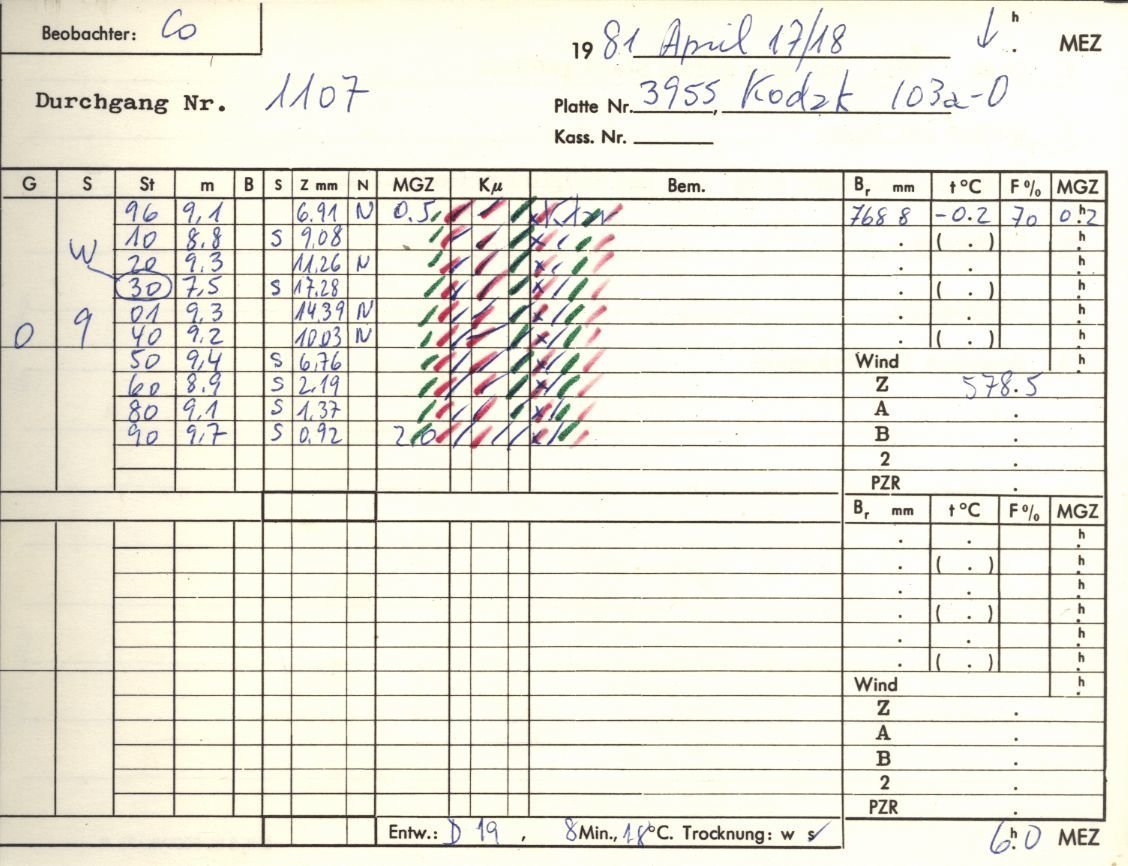 Beobachter: Co
19 81 April 17/18 ↓ h . MEZ
Durchgang Nr. 1107
Platte Nr. 3955, Kodak 103a-O
Kass. Nr.
G S St m B S Z mm N MGZ Kμ Bem. Br mm t °C F% MGZ
96 9,1 6.91 N 0.5 768 8 -0.2 70 0h.2
W 10 8,8 S 9,08 . ( . ) h.
20 9,3 11,26 N . . h.
30 7,5 S 17,28 . ( . ) h.
01 9,3 14,39 N . . h.
0 9 40 9,2 10,03 N . ( . ) h.
50 9,4 S 6,76 Wind h.
60 8,9 S 2,19 Z 578.5
80 9,1 S 1,37 A .
90 9,7 S 0,92 2,0 B .
2 .
PZR .
Br mm t °C F% MGZ
. . h.
. ( . ) h.
. . h.
. ( . ) h.
. . h.
. ( . ) h.
Wind h.
Z .
A .
B .
2 .
PZR .
Entw.: D 19 , 8 Min., 18 °C. Trocknung: w s 6h.0 MEZ